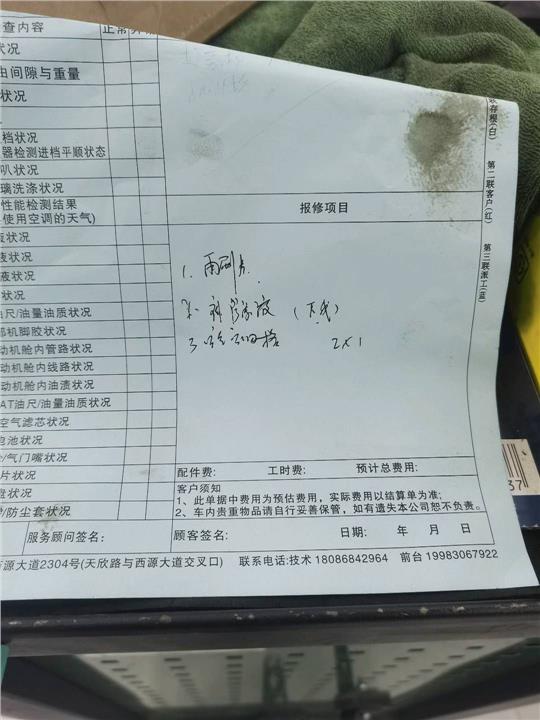 查内容 正常
状况
由间隙与重量
状况
档状况
器检测进档平顺状态
叭状况
璃洗涤状况
性能检测结果
使用空调的天气)
液状况
液状况
状况
油尺/油量油质状况
部机脚胶状况
动机舱内管路状况
动机舱内线路状况
动机舱内油渍状况
AT油尺/油量油质状况
空气滤芯状况
电池状况
/气门嘴状况
片状况
盘状况
/防尘套状况
服务顾问签名:
报修项目
1. 雨刮片
3
2x1
配件费: 工时费: 预计总费用:
客户须知
1、此单据中费用为预估费用，实际费用以结算单为准;
2、车内贵重物品请自行妥善保管，如有遗失本公司恕不负责。
顾客签名: 日期: 年 月 日
源大道2304号(天欣路与西源大道交叉口) 联系电话:技术 18086842964 前台 19983067922
存根(白)
第二联客户(红)
第三联派工(蓝)
37